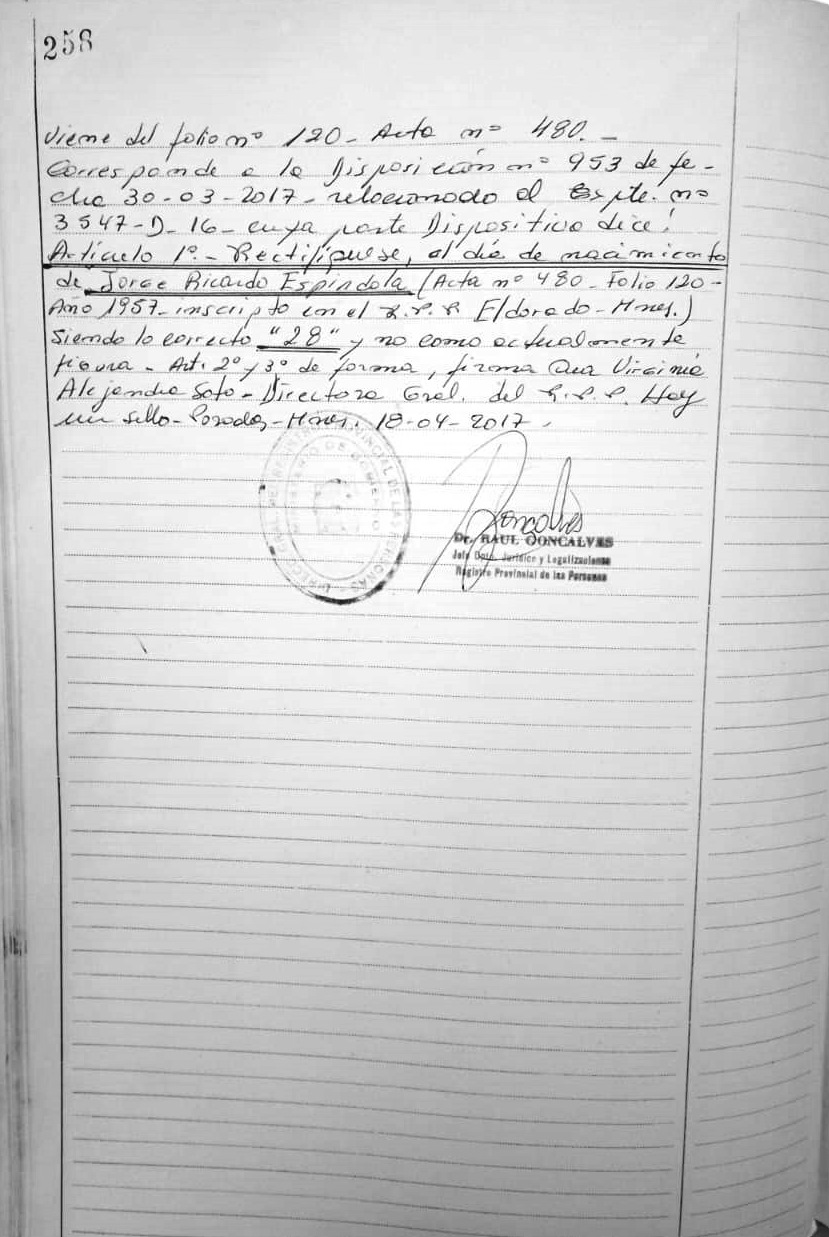 258
Viene del folio nº 120 - Acta nº 480. -
Corresponde a la Disposición nº 953 de fe-
cha 30-03-2017 - relacionado al Expte. nº
3547-D-16- cuya parte Dispositiva dice:
Artículo 1º - Rectifíquese, el día de nacimiento
de Jorge Ricardo Espindola (Acta nº 480 - Folio 120 -
Año 1957 - inscripto en el R.P.P. Eldorado - Mnes.)
Siendo lo correcto "28" y no como actualmente
figura - Art. 2º y 3º de forma, firma Ana Virginia
Alejandra Soto - Directora Gral. del R.P.P. Hay
un sello - Posadas - Mnes. 18-04-2017.
Goncalves
Dr. RAUL GONCALVES
Jefe Dpto. Jurídico y Legalizaciones
Registro Provincial de las Personas
PROVINCIAL DE LAS PERSONAS
DE GOBIERNO